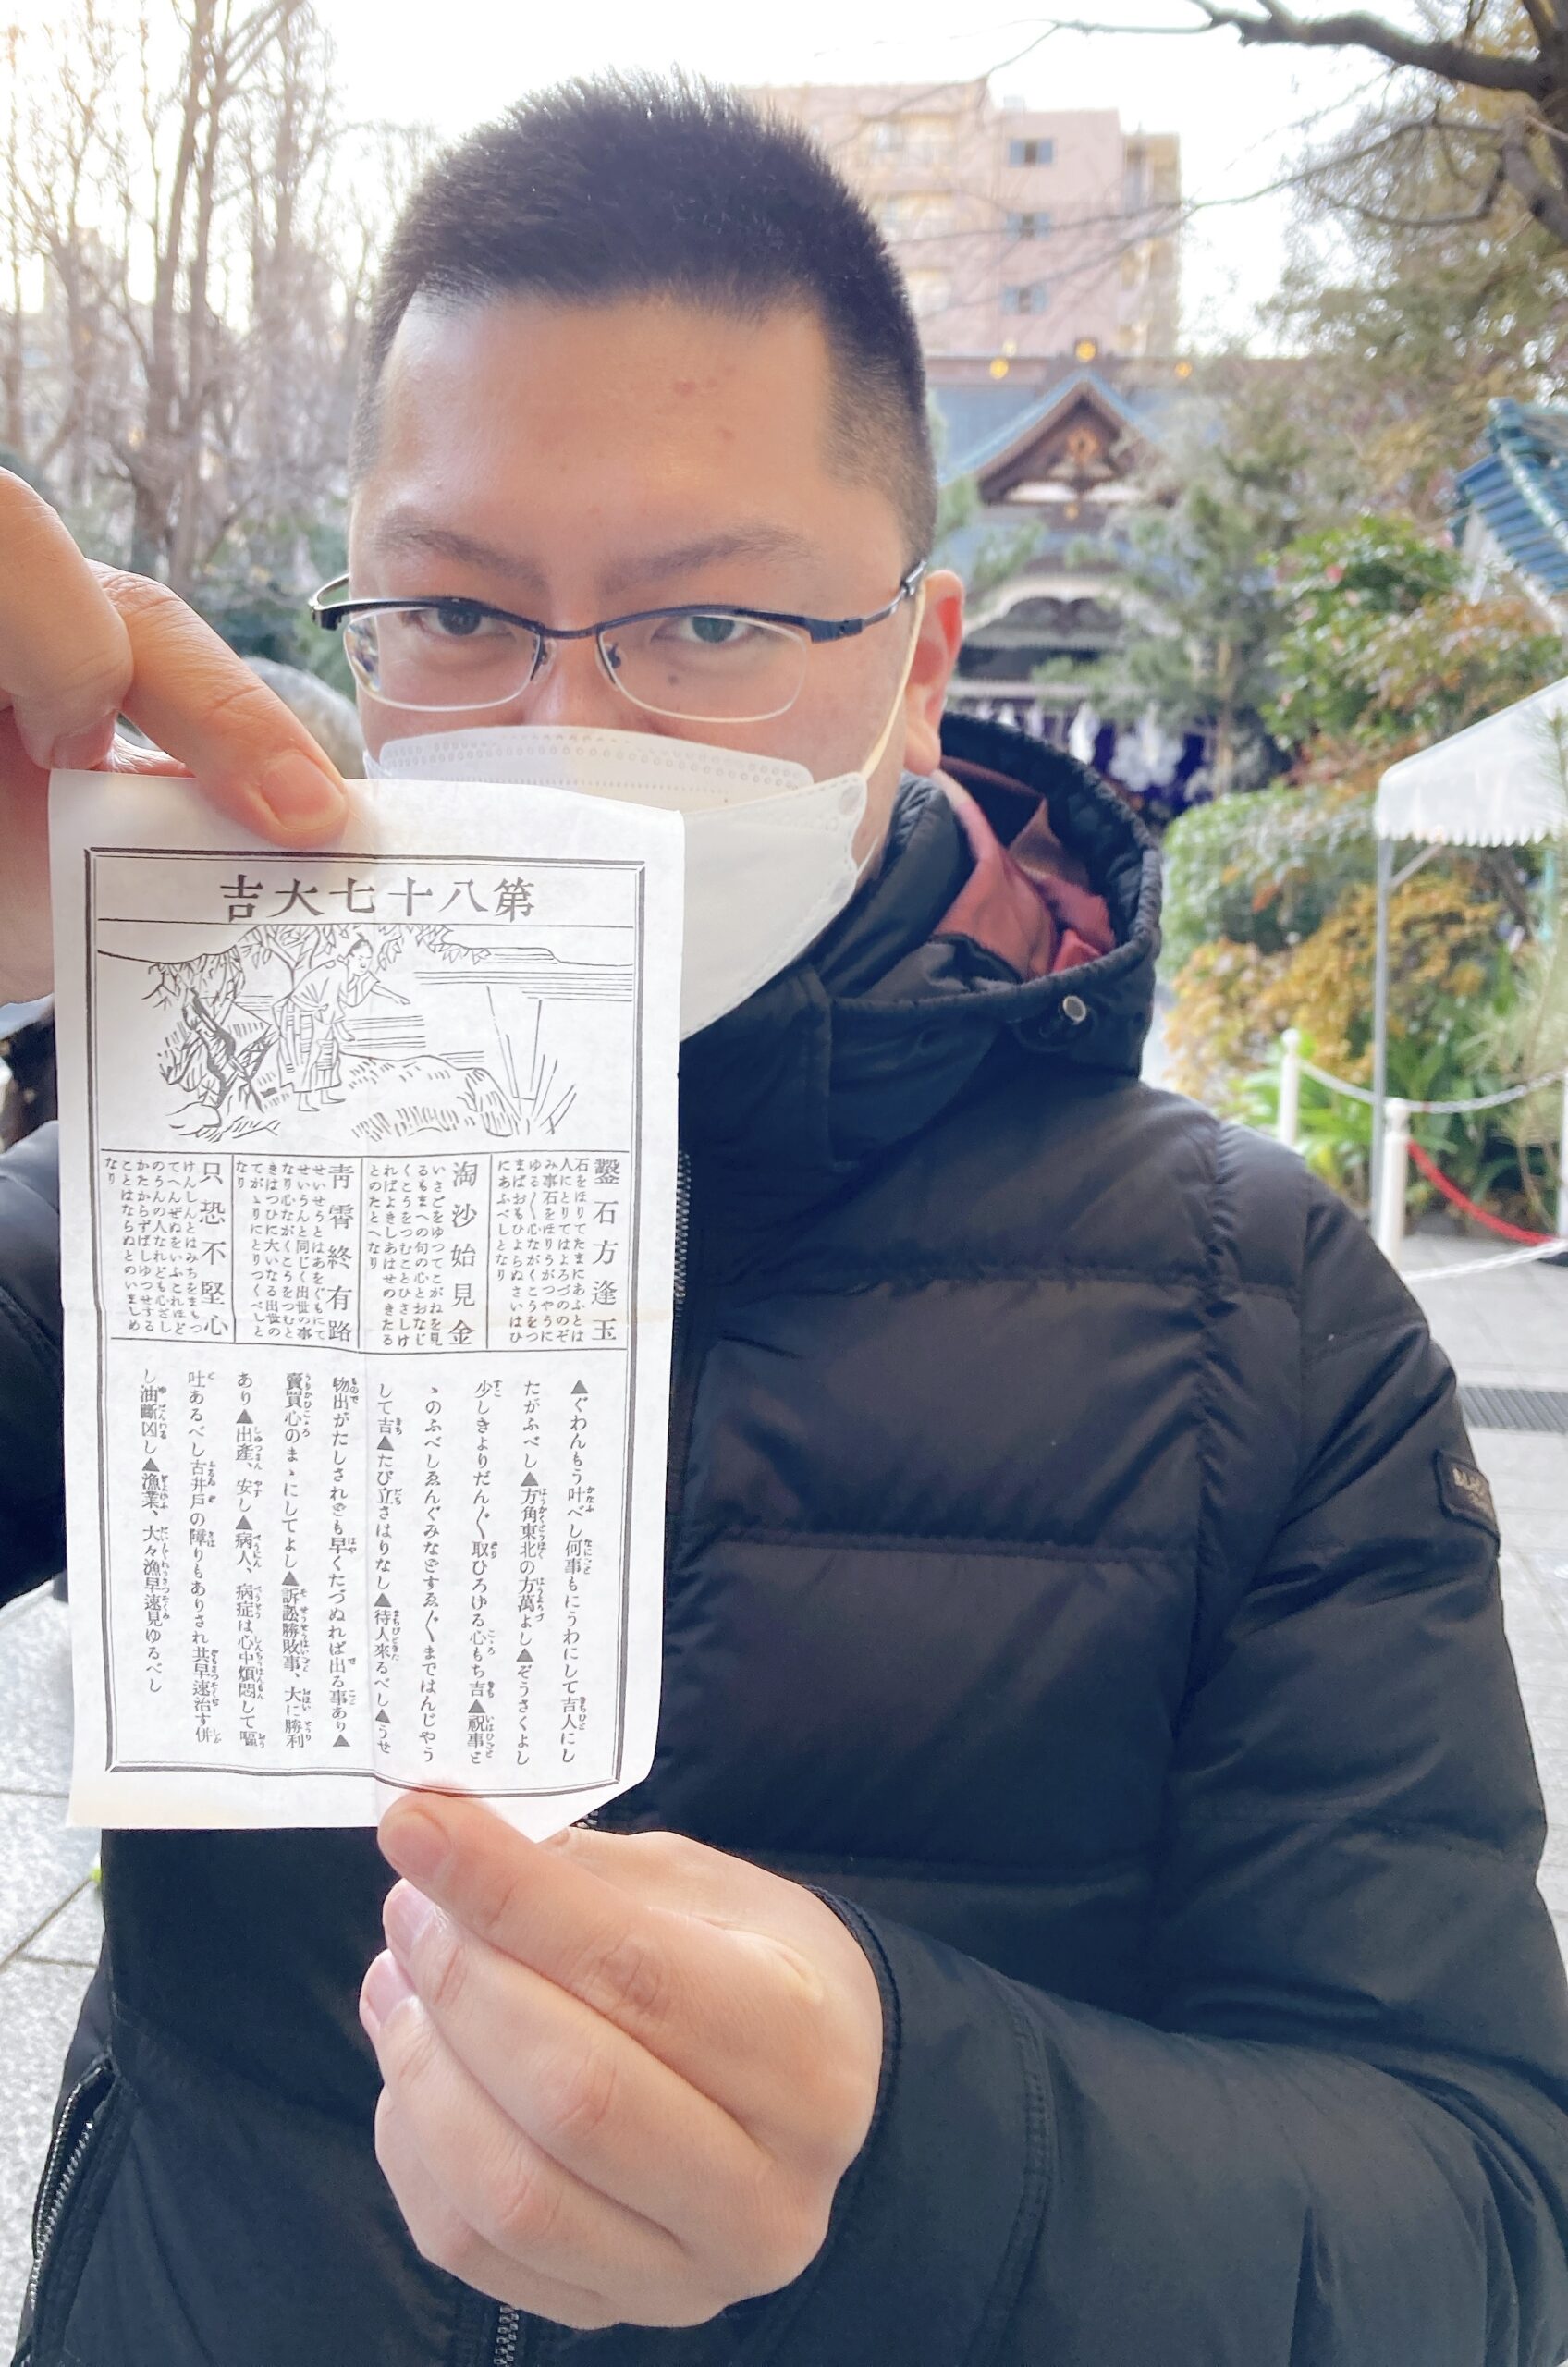 第八十七大吉
鑿石方逢玉
石をほりてたまにあふとは
人にとりてはよろづののぞ
み事石をほりうがつやうに
ゆる〳〵心ながくこうをつ
まばおもひよらぬさいはひ
にあふべしとなり
淘沙始見金
いさごをゆつてこがねを見
るもまへの句の心とおなじ
くこうをつむことひさしけ
ればよきしあはせのきたる
とのたとへなり
青霄終有路
せいせうとはあをぐもにて
せいうんと同じく出世の事
なり心ながくこうをつむと
きはつひに大いなる出世の
てがゝりにとりつくべしと
なり
只恐不堅心
けんしんとはみちをまもつ
てへんぜぬをいふこれほど
のうんの人なれども心ざし
かたからずばしゆつせする
ことはならぬとのいましめ
なり
▲ぐわんもう叶べし何事もにうわにして吉人にし
たがふべし▲方角東北の方萬よし▲ぞうさくよし
少しきよりだん〳〵取ひろげる心もち吉▲祝事と
ゝのふべしゑんぐみなどすゑ〴〵まではんじやう
して吉▲たび立さはりなし▲待人來るべし▲うせ
物出がたしされども早くたづぬれば出る事あり▲
賣買心のまゝにしてよし▲訴訟勝敗事、大に勝利
あり▲出產、安し▲病人、病症は心中煩悶して嘔
吐あるべし古井戸の障りもありされ共早速治す併
し油斷凶し▲漁業、大々漁早速見ゆるべし